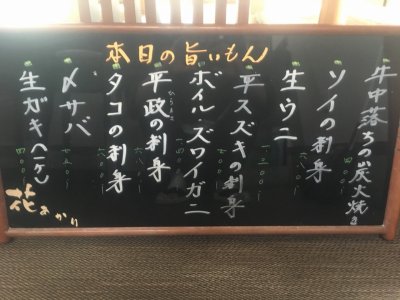 本日の旨いもん
牛中落ちの炭火焼き
ソイの刺身
生ウニ
平スズキの刺身
ボイル・ズワイガニ
平政の刺身
タコの刺身
〆サバ
生ガキ(一ケ)
花あかり